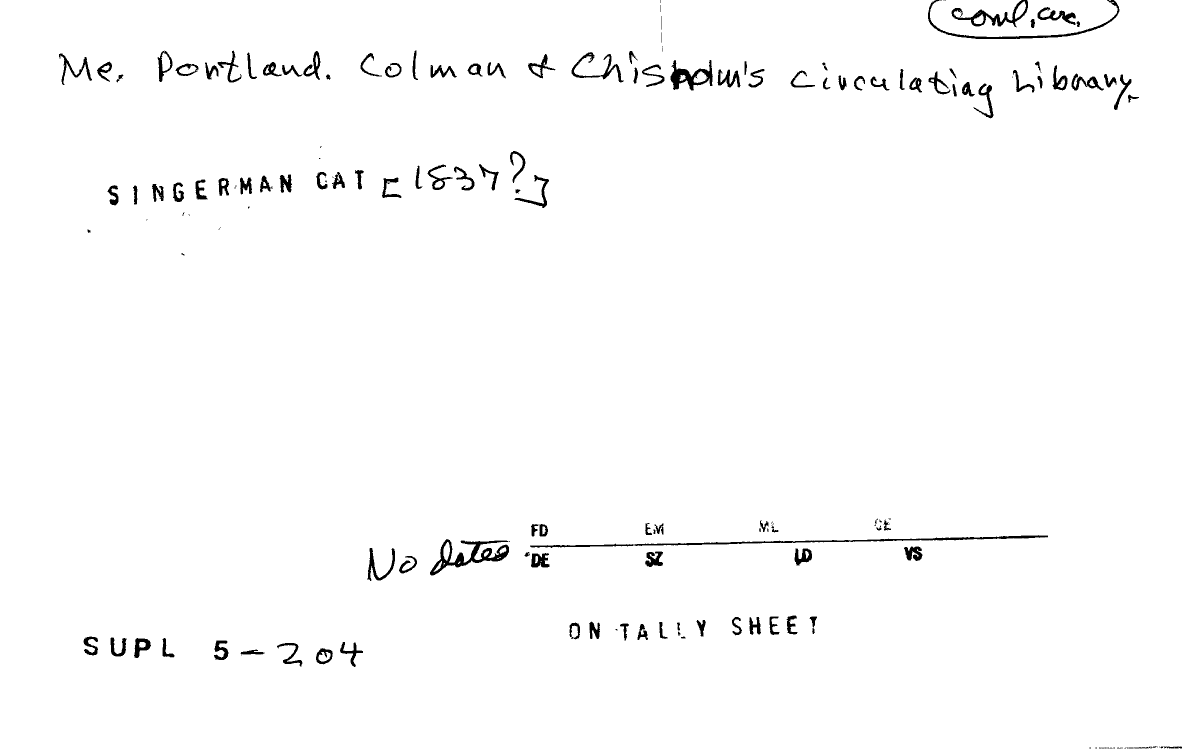 coml, circ.
Me. Portland. Colman & Chisholm's circulating Library.
SINGERMAN CAT [1837?]
FD EM ML CE
No dates DE SZ LD VS
ON TALLY SHEET
SUPL 5-204